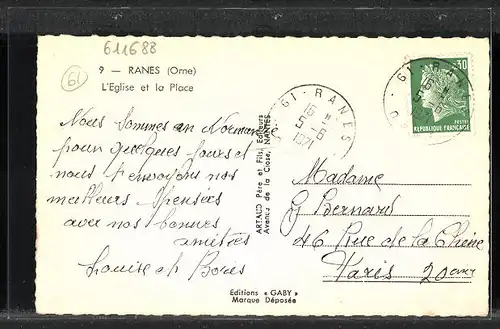 611688
61
9 — RANES (Orne)
L'Eglise et la Place
Nous sommes en Normandie
pour quelques jours et
nous t'envoyons nos
meilleurs pensées
avec nos bonnes
amitiés
Louise et Boris
ARTAUD Père et Fils, Editeurs
Avenue de la Close, NANTES
Editions « GABY »
Marque Déposée
61 - RANES
16 H
5 - 6
1971
0,30
POSTES
REPUBLIQUE FRANÇAISE
Madame
G Bernard
46 Rue de la Chine
Paris 20